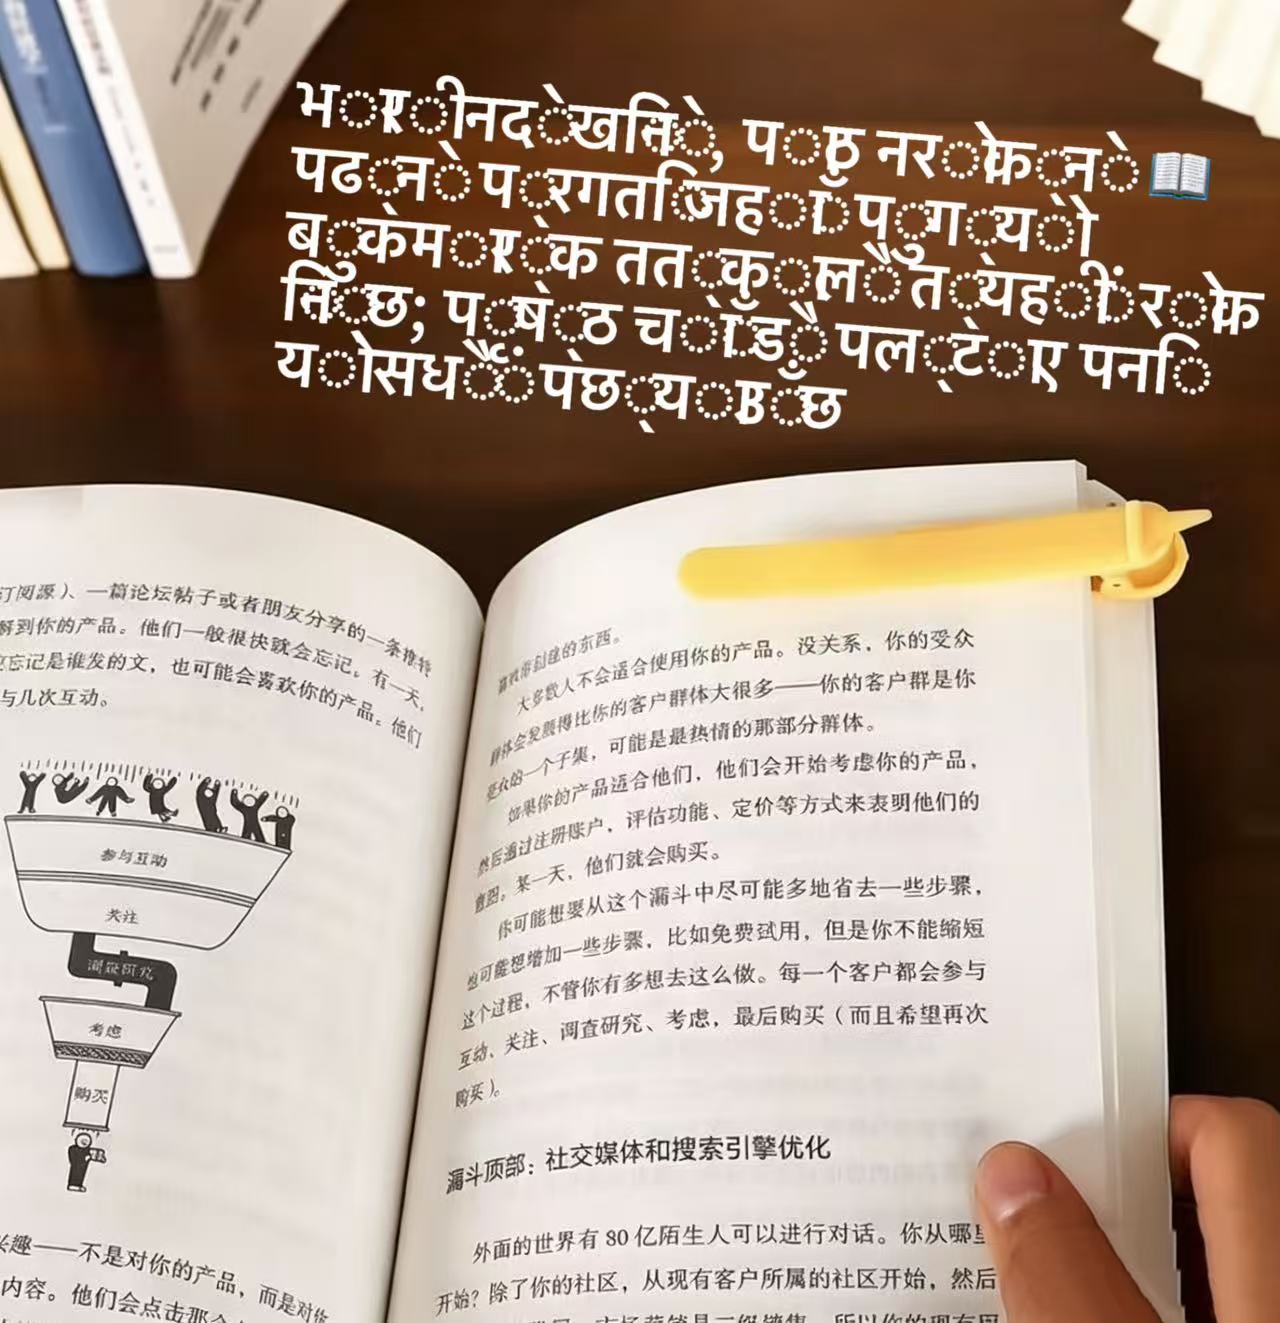 भारी नदेखिने, पाठ नरोक्ने 📖
पढ्ने प्रगति जहाँ पुग्यो
बुकमार्क तत्कालै त्यहीं रोकि
न्छ; पृष्ठ चाँडै पल्टाए पनि
यो सधैं पछ्याउँछ
订阅源）、一篇论坛帖子或者朋友分享的一条推特
解到你的产品。他们一般很快就会忘记。有一天，
忘记是谁发的文，也可能会喜欢你的产品。他们
与几次互动。
参与互动
关注
调查研究
考虑
购买
兴趣——不是对你的产品，而是对你
内容。他们会点击那个
创建的东西。
大多数人不会适合使用你的产品。没关系，你的受众
群体会发展得比你的客户群体大很多——你的客户群是你
受众的一个子集，可能是最热情的那部分群体。
如果你的产品适合他们，他们会开始考虑你的产品，
然后通过注册账户，评估功能、定价等方式来表明他们的
意图。某一天，他们就会购买。
你可能想要从这个漏斗中尽可能多地省去一些步骤，
也可能想增加一些步骤，比如免费试用，但是你不能缩短
这个过程，不管你有多想去这么做。每一个客户都会参与
互动、关注、调查研究、考虑，最后购买（而且希望再次
购买）。
漏斗顶部：社交媒体和搜索引擎优化
外面的世界有 80 亿陌生人可以进行对话。你从哪里
开始？除了你的社区，从现有客户所属的社区开始，然后